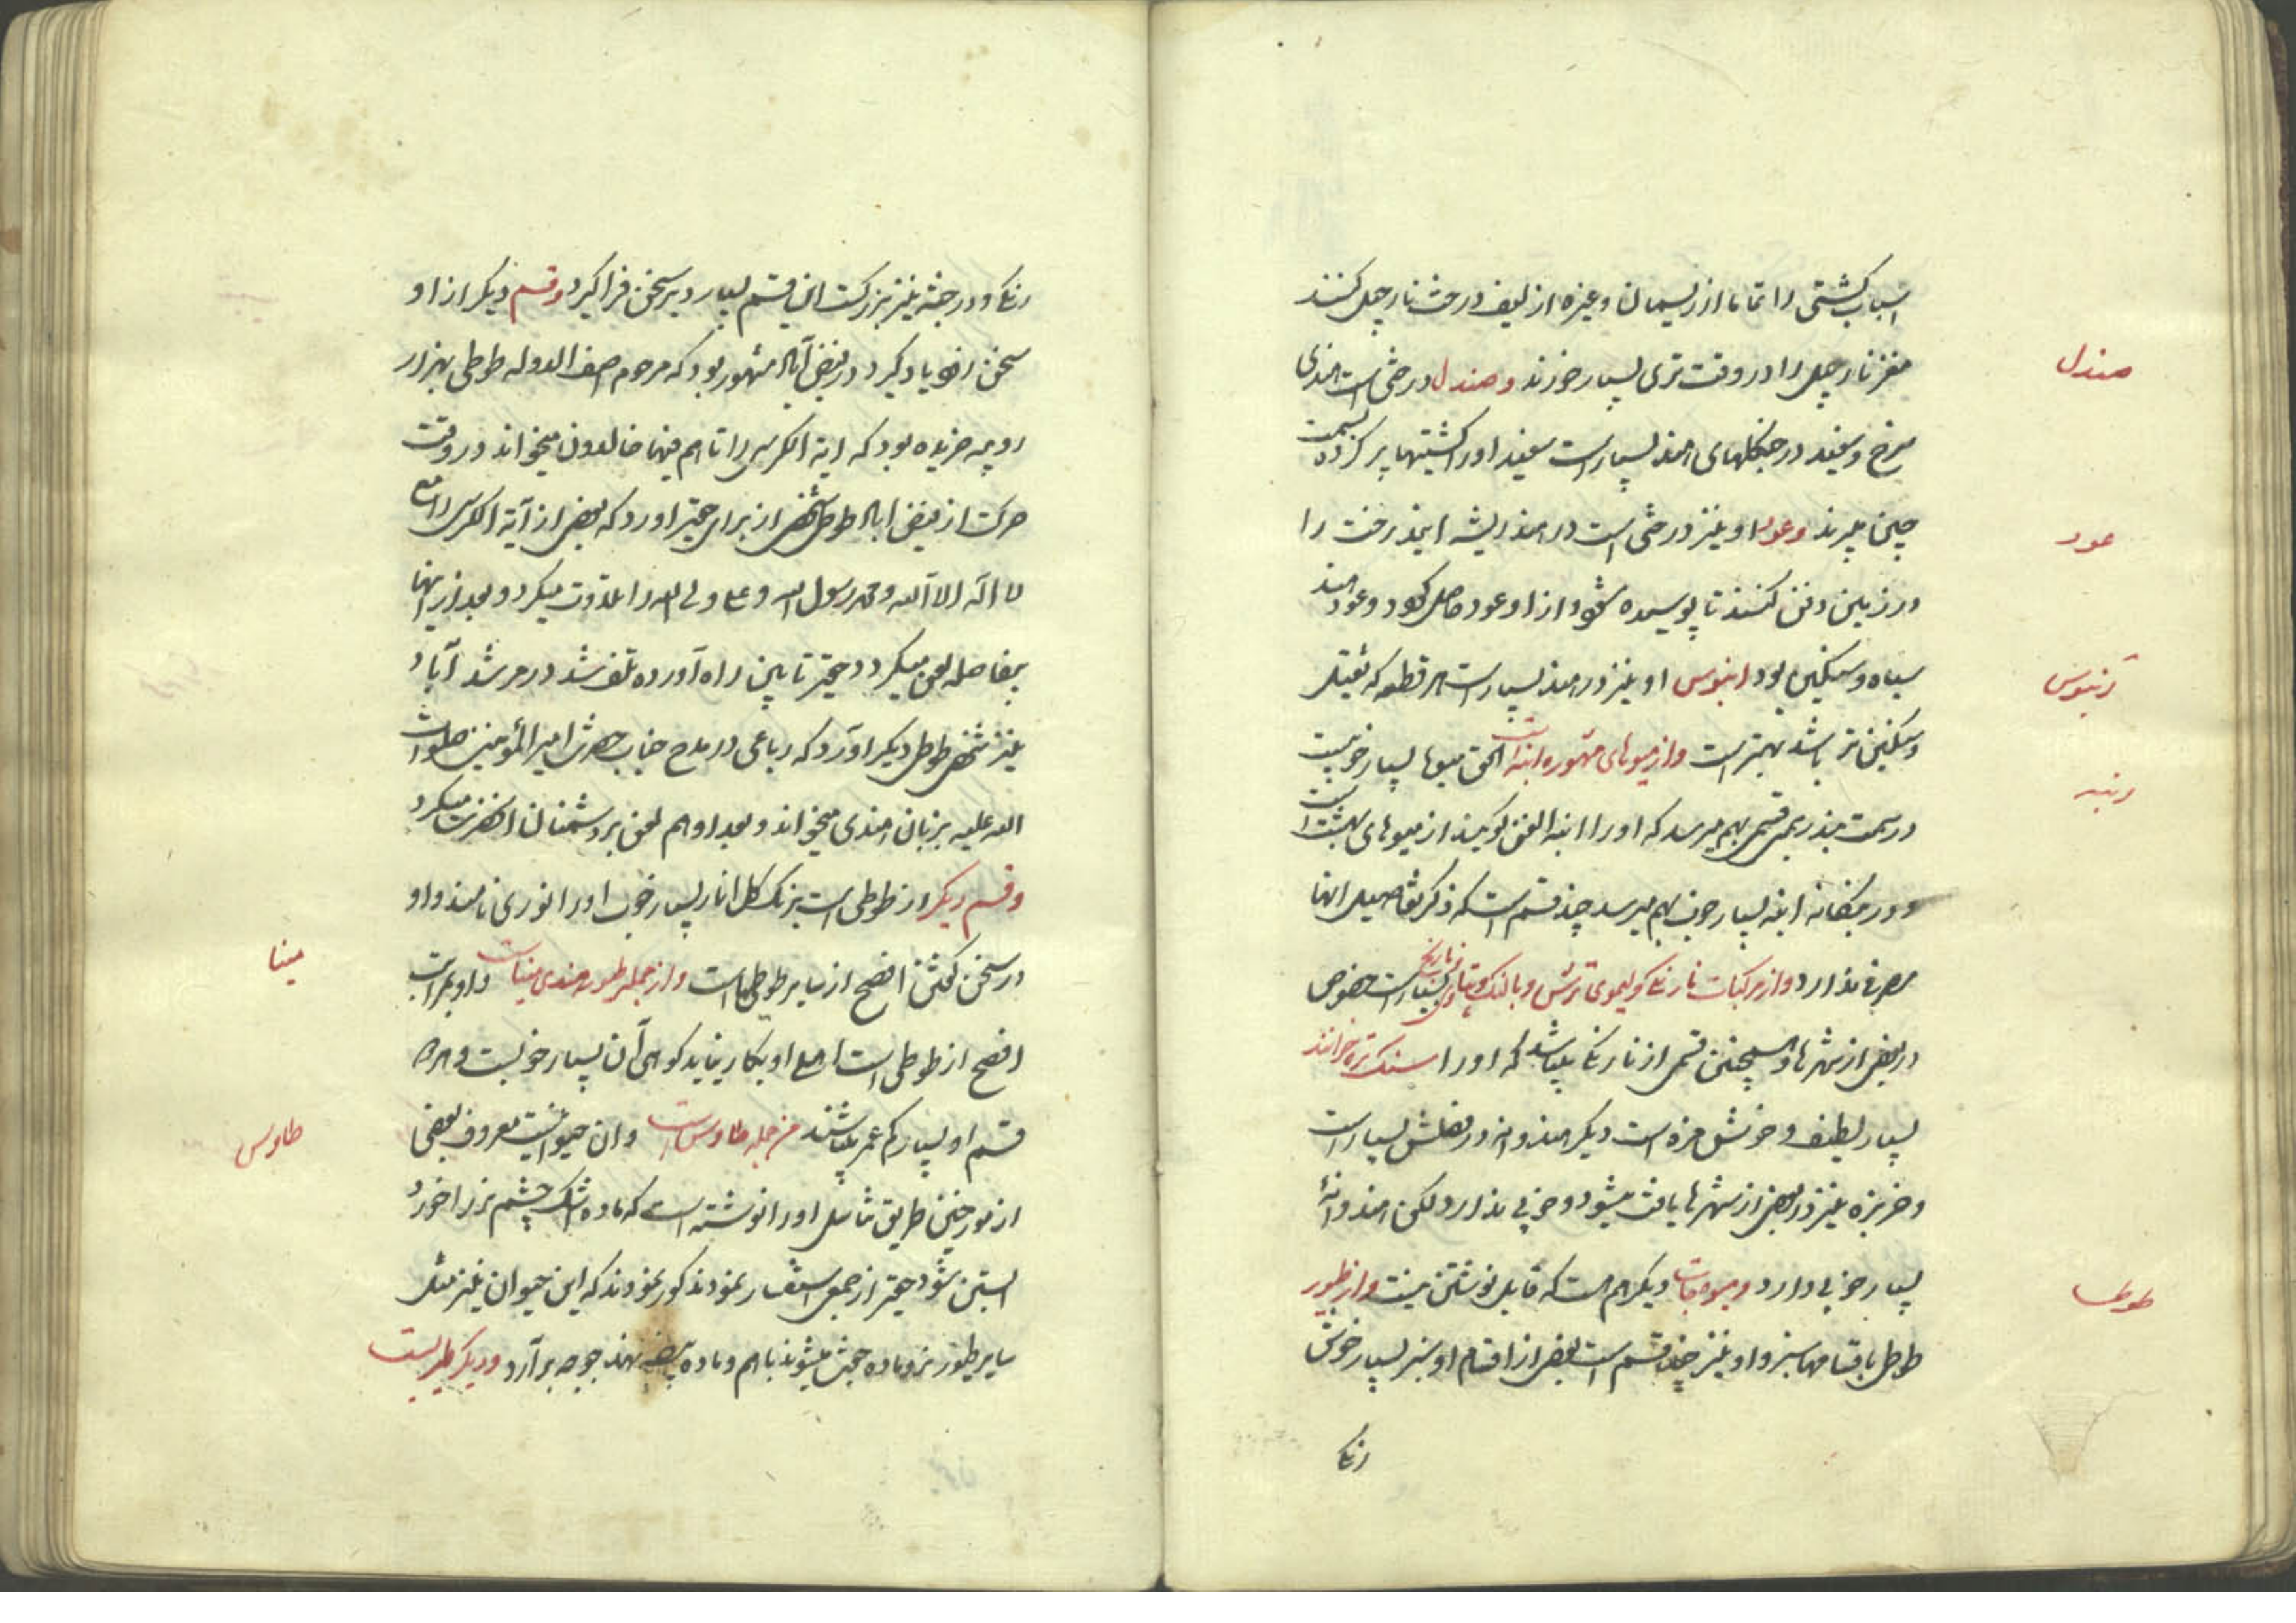 اسباب کشتی را تماما از ریسمان و غیره از لیف درخت نارجیل کنند
مغز نارجیل را در وقت تری بسیار خورند و صندل درختی است هندی
صندل
سرخ و سفید در جنگلهای هند بسیار است سفید او را کشتیها پر کرده بسمت
چین میبرند و عود او نیز درختی است در هند ریشه این درخت را
عود
در زمین دفن کنند تا پوسیده شود از او عود حاصل گردد و عود هند
سیاه و سنگین بود ابنوس او نیز در هند بسیار است هر قطعه که ثقیل
آبنوس
و سنگین تر باشد بهتر است و از میوهای مشهوره انبه است الحق میوها بسیار خوبیست
انبه
در سمت بندر بمبئی قسمی بهم میرسد که او را انبه الفن گویند از میوهای بهشت است
و در بنگاله انبه بسیار خوب بهم میرسد چند قسم است که ذکر تفاصیل انها
صرفی ندارد و از مرکبات نارنگی و لیموی ترش و بالنگ و نارنج بسیار است خصوص
در بعضی از شهرها و همچنین قسمی از نارنگی میباشد که او را سنگتره خوانند
بسیار لطیف و خوش مزه است دیگر هندوانه در فصلش بسیار است
و خربزه نیز در بعضی از شهرها یافت میشود و خوبی ندارد لکن هندوانه
بسیار خوبی دارد و میوه جات دیگر هم هست که قابل نوشتن نیست و از طیور
طوطی
طوطی باقسامها سبز و او نیز چند قسم است بعضی از اقسام او سبز بسیار خوش
رنگی
رنگی و در جثه نیز بزرگست این قسم بسیار دیر سخن فرا گیرد و قسم دیگر از او
سخن زود یاد گیرد در فیض آباد مشهور بود که مرحوم اصف الدوله طوطی بهزار
روپیه خریده بود که ایة الکرسی را تا هم فیها خالدون میخواند در وقت
حرکت از فیض اباد طوطی شخصی از برای حقیر اورد که بعضی از آیة الکرسی را مع
لا اله الا الله و محمد رسول الله و علی ولی الله را تلاوت میکرد و بعد از اینها
بفاصله لعن میکرد حقیر تا بین راه آورده تلف شد در مرشد آباد
نیز شخصی طوطی دیگر اورد که رباعی در مدح جناب حضرت امیر المؤمنین صلوات
الله علیه بزبان هندی میخواند و بعد او هم لعن بر دشمنان انحضرت میکرد
و قسم دیگر از طوطی است برنگ گل انار بسیار خوب او را نوری نامند و او
در سخن گفتن افصح از سایر طوطیها است و از جمله طیور هندی میناست و او بمراتب
مینا
افصح از طوطی است اصلی او بکار نیاید کوهی آن بسیار خوبست و هر دو
قسم او بسیار کم عمر میباشند من جمله طاوس است و ان حیوانیست معروف بعضی
طاوس
از مورخین طریق تناسل او را نوشته است که ماده اشک چشم نر را خورد
ابستن شود حقیر از جمعی استفسار نمود مذکور نمودند که این حیوان نیز مثل
سایر طیور نر و ماده جفت میشوند با هم و ماده بیضه نهد جوجه بر آرد و دیگر طیریست